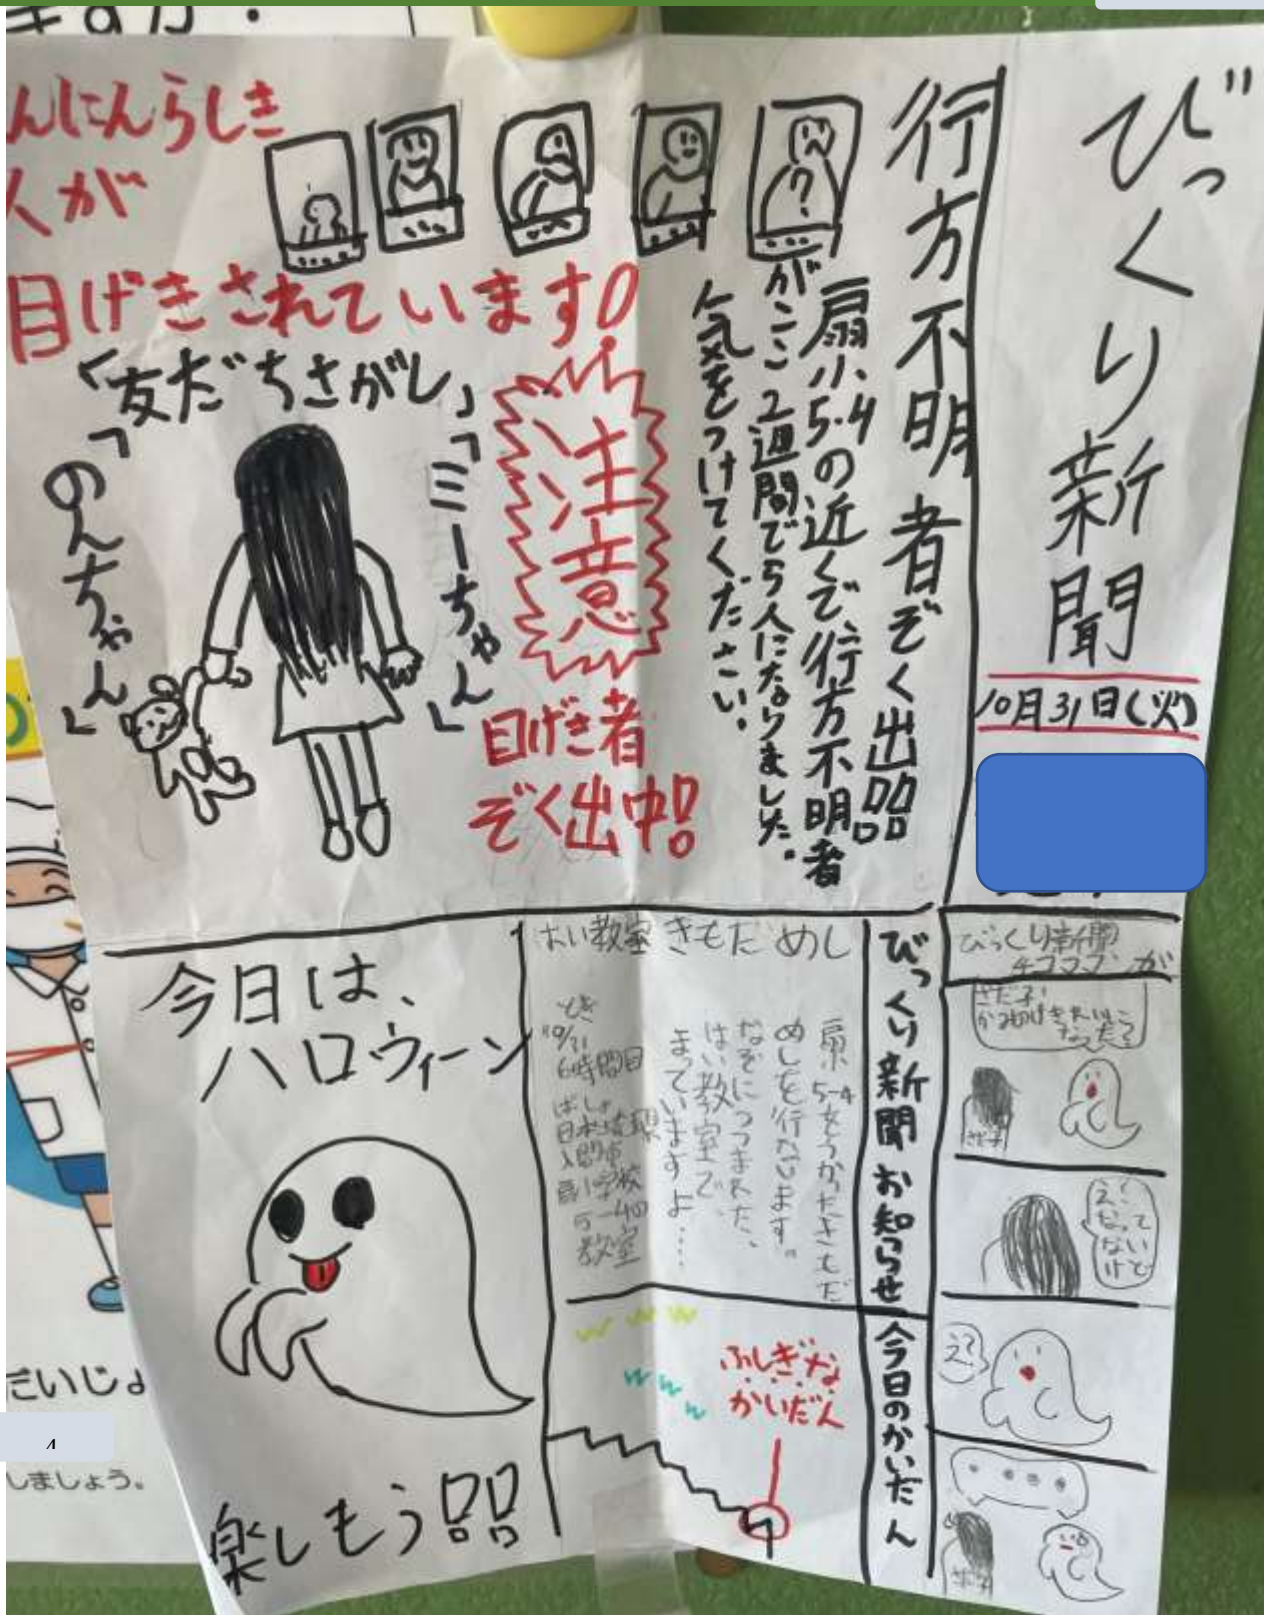 びっくり新聞
10月31日(火)
行方不明者ぞく出!!
扇小5-4の近くで行方不明者
がここ2週間で5人になりました。
気をつけてください。
?
んにんらしき
人が
目げきされています!
注意
目げき者
ぞく出中!!
「友だちさがし」
「ミーちゃん」
「のんちゃん」
びっくり新聞
4コママンガ
さだ子!
かみの毛きれいに
なった?
さだ子
え?
なって
ないけど
え?
え!
・・・・
さだ子
びっくり新聞お知らせ
はい教室きもだめし
扇小5-4をつかったきもだ
めしを行ないます。
なぞにつつまれた、
はい教室で、
まっていますよ……
とき
10/31
6時間目
ばしょ
日本埼玉県
入間市
扇小学校
5-4の
教室
今日のかいだん
ふしぎな
かいだん
今日は、
ハロウィーン
楽しもう!!
だいじょ
しましょう。
4